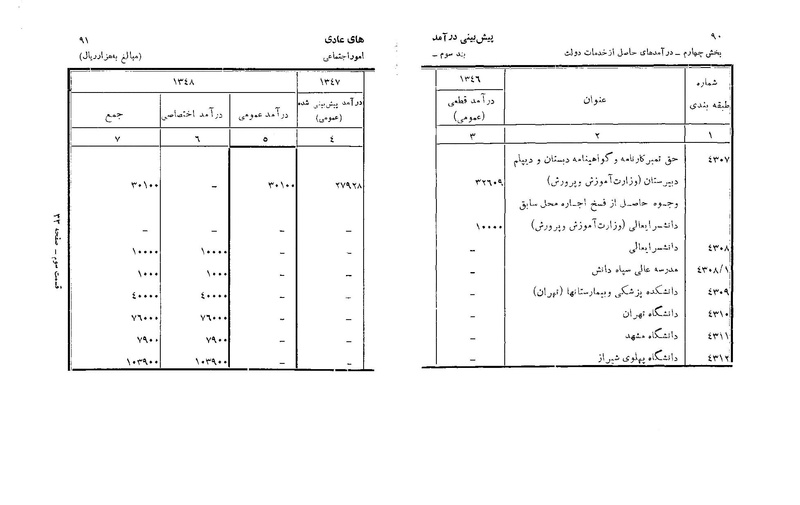 ۹۰
پیش‌بینی درآمد
بخش چهارم ـ درآمدهای حاصل از خدمات دولت
بند سوم ـ
شماره طبقه بندی | عنوان | ۱۳۴۶
درآمد قطعی (عمومی)
۱ | ۲ | ۳
۴۳۰۷ | حق تمبر کارنامه و گواهینامه دبستان و دیپلم
دبیرستان (وزارت آموزش و پرورش) | ۳۲۶۰۹
وجوه حاصل از فسخ اجاره محل سابق
دانشسرایعالی (وزارت آموزش و پرورش) | ۱۰۰۰۰
۴۳۰۸ | دانشسرایعالی | ـ
۴۳۰۸/۱ | مدرسه عالی سپاه دانش | ـ
۴۳۰۹ | دانشکده پزشکی و بیمارستانها (تهران) | ـ
۴۳۱۰ | دانشگاه تهران | ـ
۴۳۱۱ | دانشگاه مشهد | ـ
۴۳۱۲ | دانشگاه پهلوی شیراز | ـ
های عادی
۹۱
امور اجتماعی
(مبالغ به‌هزار ریال)
۱۳۴۷ | ۱۳۴۸
درآمد پیش‌بینی شده (عمومی) | درآمد عمومی | درآمد اختصاصی | جمع
۴ | ۵ | ۶ | ۷
۲۷۹۲۸ | ۳۰۱۰۰ | ـ | ۳۰۱۰۰
ـ | ـ | ـ | ـ
ـ | ـ | ۱۰۰۰۰ | ۱۰۰۰۰
ـ | ـ | ۱۰۰۰ | ۱۰۰۰
ـ | ـ | ۴۰۰۰۰ | ۴۰۰۰۰
ـ | ـ | ۷۶۰۰۰ | ۷۶۰۰۰
ـ | ـ | ۷۹۰۰ | ۷۹۰۰
ـ | ـ | ۱۰۳۹۰۰ | ۱۰۳۹۰۰
قسمت سوم ـ صفحه ۳۳